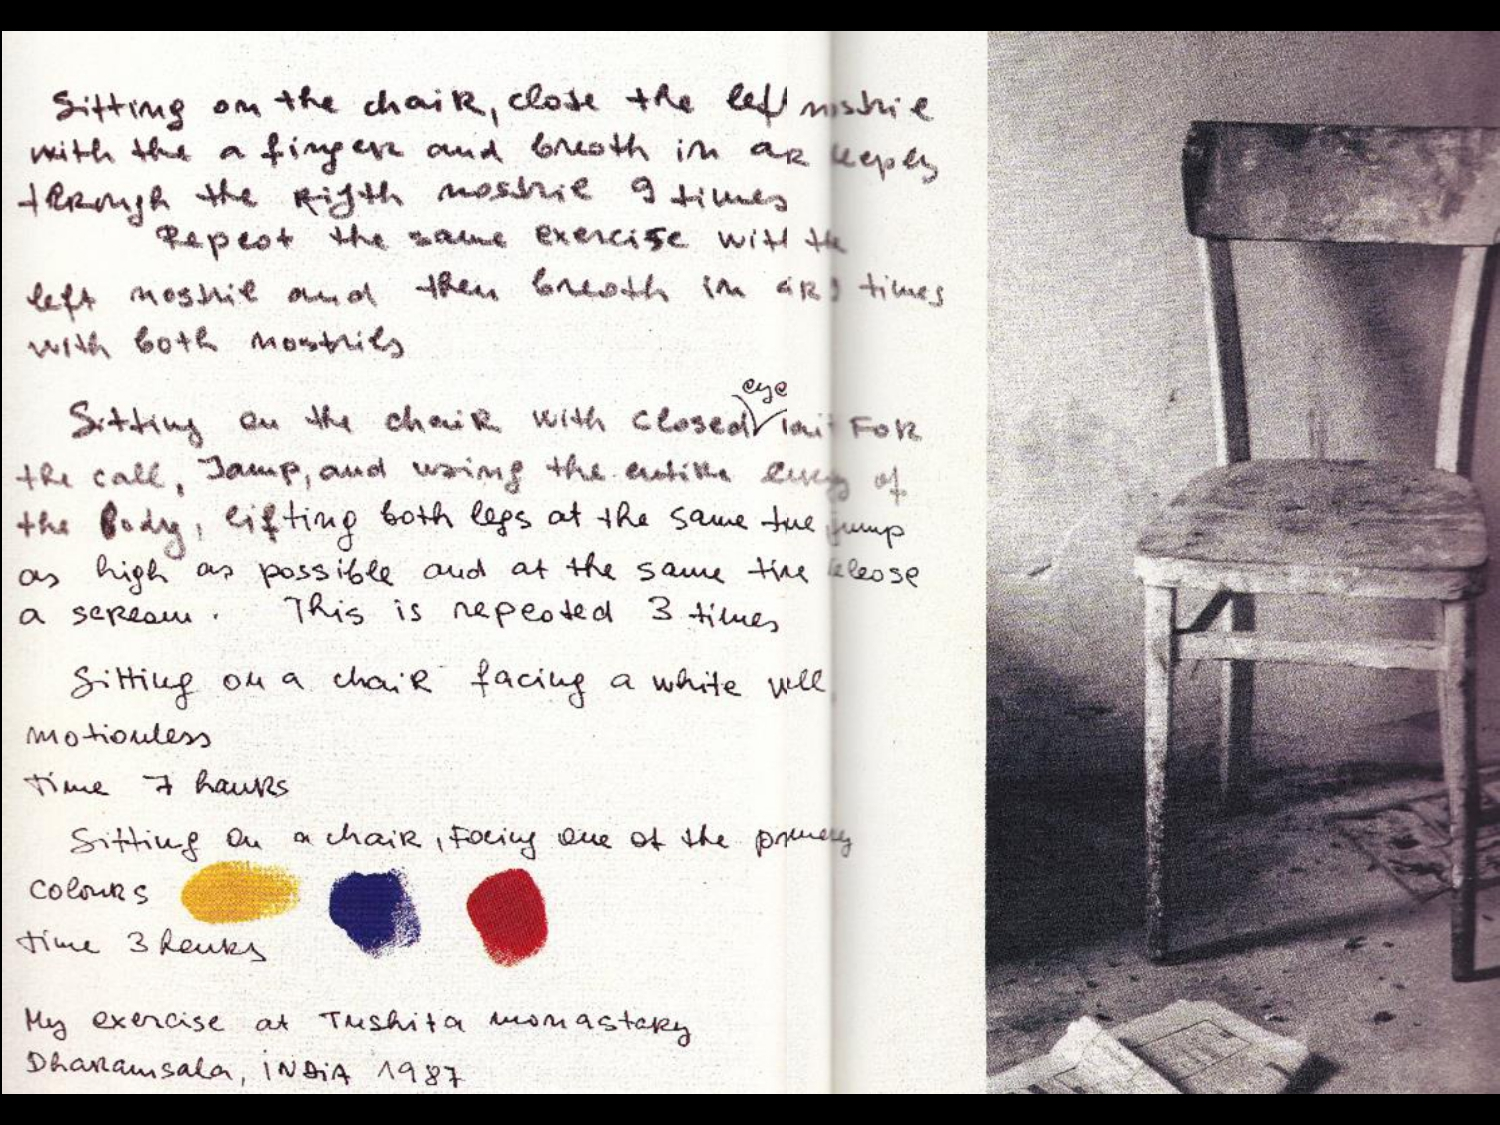 Sitting on the chair, close the left nostril
with the a finger and breath in air deeply
through the rigth nostril 9 times
Repeat the same exercise with the
left nostril and then breath in air 9 times
with both nostrils
eye
Sitting on the chair with closed wait for
the call, Jamp, and using the entire energy of
the Body, lifting both legs at the same time jump
as high as possible and at the same time release
a scream. This is repeated 3 times
Sitting on a chair facing a white wall
motionless
time 7 hours
Sitting on a chair, facing one of the primary
colours
time 3 hours
My exercise at Tushita monastery
Dharamsala, iNDiA 1987